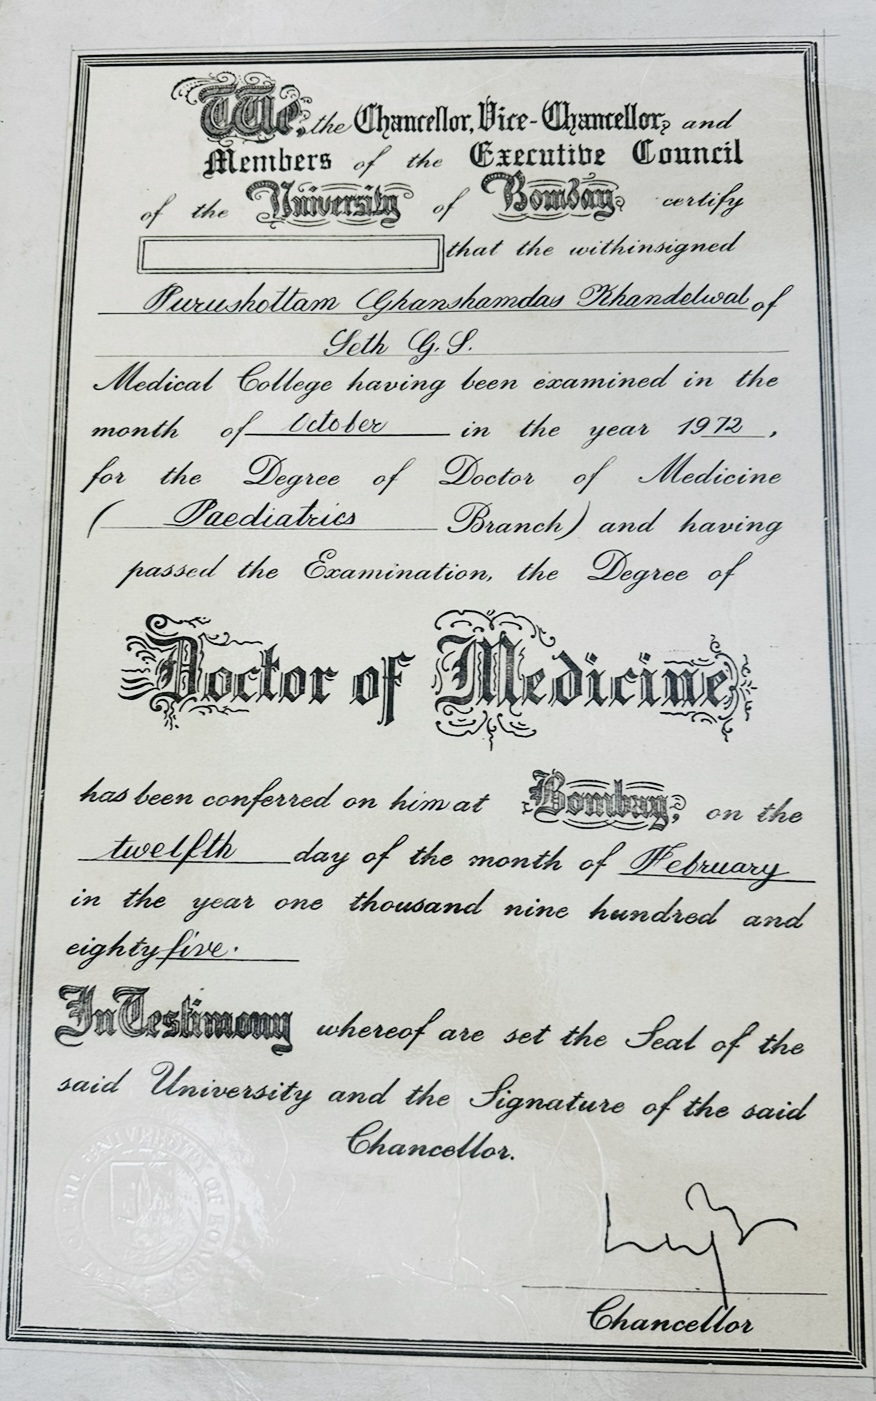 We, the Chancellor, Vice-Chancellor, and
Members of the Executive Council
of the University of Bombay, certify
that the withinsigned
Purushottam Ghanshamdas Khandelwal of
Seth G. S.
Medical College having been examined in the
month of October in the year 1972,
for the Degree of Doctor of Medicine
( Paediatrics Branch) and having
passed the Examination, the Degree of
Doctor of Medicine
has been conferred on him at Bombay, on the
twelfth day of the month of February
in the year one thousand nine hundred and
eighty five.
In Testimony whereof are set the Seal of the
said University and the Signature of the said
Chancellor.
Chancellor